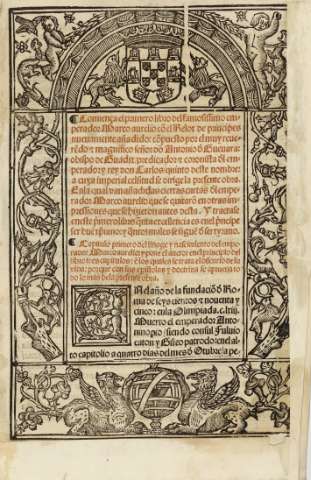 ¶ Comiença el primero libro del famosissimo em-
perador Marco aurelio cō el Relox de principes
nueuamente añadido: cōpuesto por el muy reue-
rēdo ⁊ magnifico señor dō Antonio ð Gueuara
obispo de Guadix predicador ⁊ coronista ðl em-
perador y rey don Carlos quinto deste nombre:
a cuya imperial celsitud se dirige la presente obra.
En la qual van añadidas ciertas cartas ðl empe-
rador Marco aurelio que se quitarō en otras im-
pressiones que se hizieron antes desta. Y tractase
en este primero libro quāta excelencia es en el prīcipe
ser buē xpiano: ⁊ quātos males se sigue ð ser tyrano.
¶ Capitulo primero del linage y nascimiento del empe-
rador Marco aurelio
libro: tres capitulos: ē los quales se trata el discurso de su
vida: porque con sus epistolas y doctrina se aprueua to
do lo mas de la presente obra.
EN el año de la fundaciō ð Ro
ma de seys cientos ⁊ nouenta y
cinco: en la Olimpiada .c.lxiij.
Muerto el emperador Anto-
nino pio: siendo consul Fuluio
caton y Gneo patroclo: en el al-
to capitolio a quatro dias del mes ð Otubre/ a pe-